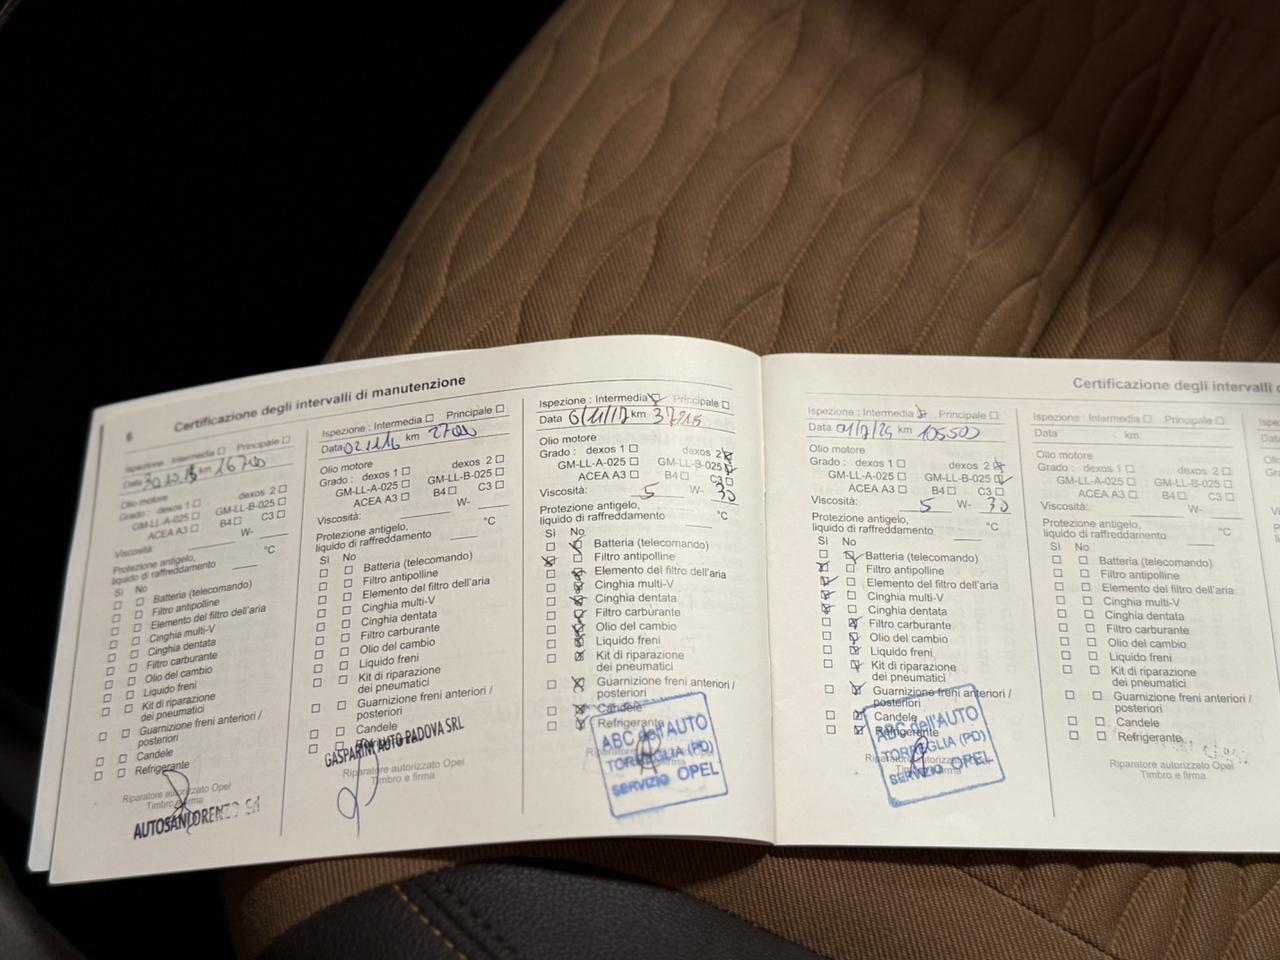 6
Certificazione degli intervalli di manutenzione
Ispezione : Intermedia Principale
Data 30.10.15 km 16700
Olio motore
Grado : dexos 1 dexos 2
GM-LL-A-025 GM-LL-B-025
ACEA A3 B4 C3
Viscosità: W-
Protezione antigelo,
liquido di raffreddamento °C
Sì No
Batteria (telecomando)
Filtro antipolline
Elemento del filtro dell'aria
Cinghia multi-V
Cinghia dentata
Filtro carburante
Olio del cambio
Liquido freni
Kit di riparazione
dei pneumatici
Guarnizione freni anteriori /
posteriori
Candele
Refrigerante
Riparatore autorizzato Opel
Timbro e firma
AUTOSANLORENZO Srl
Ispezione : Intermedia Principale
Data 02.11.16 km
Olio motore
Grado : dexos 1 dexos 2
GM-LL-A-025 GM-LL-B-025
ACEA A3 B4 C3
Viscosità: W-
Protezione antigelo,
liquido di raffreddamento °C
Sì No
Batteria (telecomando)
Filtro antipolline
Elemento del filtro dell'aria
Cinghia multi-V
Cinghia dentata
Filtro carburante
Olio del cambio
Liquido freni
Kit di riparazione
dei pneumatici
Guarnizione freni anteriori /
posteriori
Candele
GASPARINI AUTO PADOVA SRL
Riparatore autorizzato Opel
Timbro e firma
Ispezione : Intermedia Principale
Data 6/11/17 km 37215
Olio motore
Grado : dexos 1 dexos 2
GM-LL-A-025 GM-LL-B-025
ACEA A3 B4 C3
Viscosità: 5 W- 30
Protezione antigelo,
liquido di raffreddamento °C
Sì No
Batteria (telecomando)
Filtro antipolline
Elemento del filtro dell'aria
Cinghia multi-V
Cinghia dentata
Filtro carburante
Olio del cambio
Liquido freni
Kit di riparazione
dei pneumatici
Guarnizione freni anteriori /
posteriori
Candele
Refrigerante
ABC dell'AUTO
TORREGLIA (PD)
SERVIZIO OPEL
Certificazione degli intervalli
Ispezione : Intermedia Principale
Data 01/7/24 km 105500
Olio motore
Grado : dexos 1 dexos 2
GM-LL-A-025 GM-LL-B-025
ACEA A3 B4 C3
Viscosità: 5 W- 30
Protezione antigelo,
liquido di raffreddamento °C
Sì No
Batteria (telecomando)
Filtro antipolline
Elemento del filtro dell'aria
Cinghia multi-V
Cinghia dentata
Filtro carburante
Olio del cambio
Liquido freni
Kit di riparazione
dei pneumatici
Guarnizione freni anteriori /
posteriori
Candele
Refrigerante
ABC dell'AUTO
TORREGLIA (PD)
Riparatore autorizzato Opel
Timbro e firma
SERVIZIO OPEL
Ispezione : Intermedia Principale
Data km
Olio motore
Grado : dexos 1 dexos 2
GM-LL-A-025 GM-LL-B-025
ACEA A3 B4 C3
Viscosità: W-
Protezione antigelo,
liquido di raffreddamento °C
Sì No
Batteria (telecomando)
Filtro antipolline
Elemento del filtro dell'aria
Cinghia multi-V
Cinghia dentata
Filtro carburante
Olio del cambio
Liquido freni
Kit di riparazione
dei pneumatici
Guarnizione freni anteriori /
posteriori
Candele
Refrigerante
Riparatore autorizzato Opel
Timbro e firma